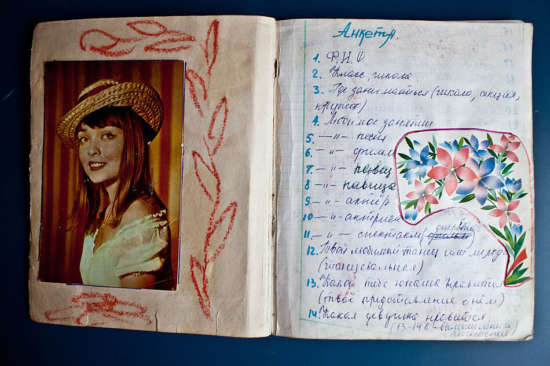 Анкета
1. Ф.И.О
2. Класс, школа
3. Где занимаешься (школа, секция,
кружок)
4. Любимое занятие
5. —"— песня
6. —"— фильм
7. —"— певец
8 —"— певица
9 —"— актёр
10 —"— актриса
11. —"— спектакль
12. Твой любимый танец или
(танцевальная)
13. Какой тебе юноша нравится
(твоё представление о нём)
14. Какая девушка нравится